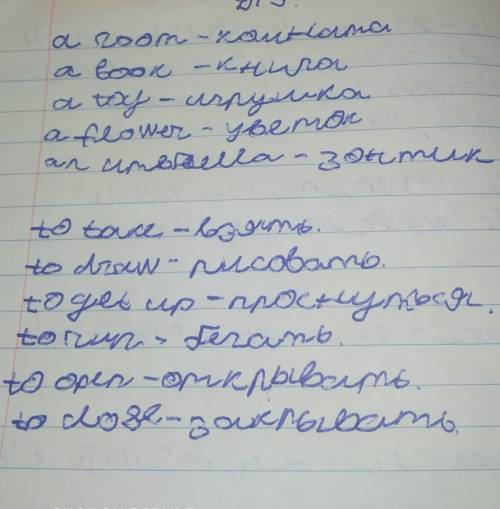 a room - комната
a book - книга
a toy - игрушка
a flower - цветок
an umbrella - зонтик
to take - взять.
to draw - рисовать.
to get up - проснуться.
to run - бегать.
to open - открывать.
to close - закрывать.